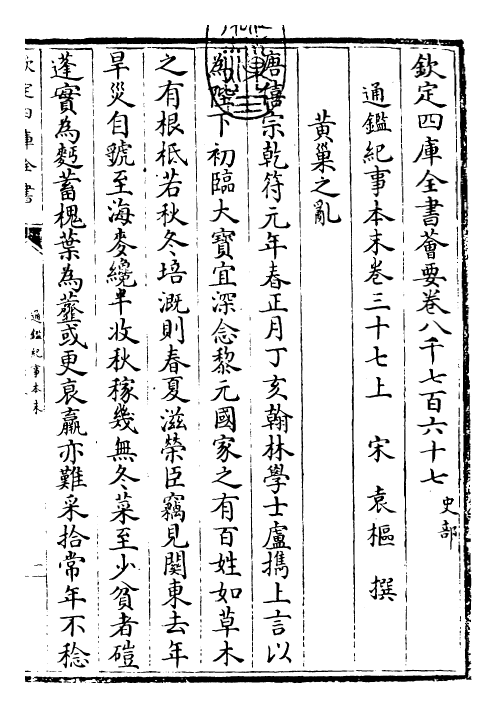 欽定四庫全書薈要卷八千七百六十七 史部
通鑑紀事本末卷三十七上 宋 袁樞 撰
黄巢之亂
唐僖宗乾符元年春正月丁亥翰林學士盧攜上言以
為陛下初臨大寶宜深念黎元國家之有百姓如草木
之有根柢若秋冬培溉則春夏滋榮臣竊見関東去年
旱災自虢至海麥纔半收秋稼幾無冬菜至少貧者磑
蓬實為麫蓄槐葉為虀或更衰羸亦難采拾常年不稔
欽定四庫全書
通鑑紀事本末